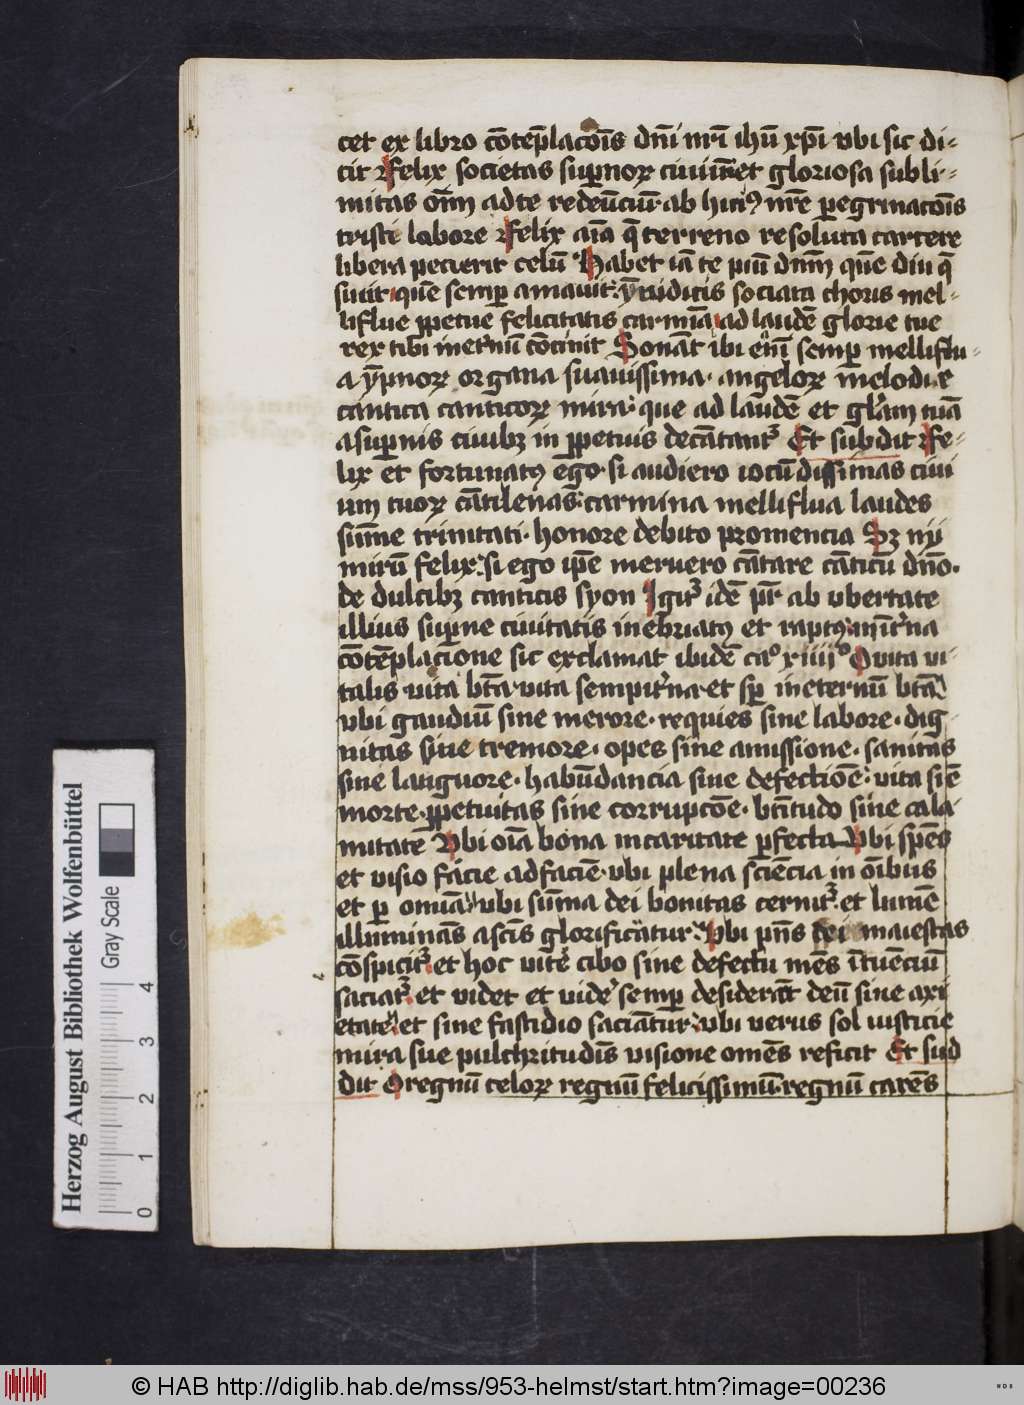 cet ex libro cōtēplacōīs dnī nrī ihū xpī vbi sic di-
cit O felix societas supernoꝝ ciuiū et gloriosa subli-
mitas oīm ad te redeūciū ab huiꝰ nrē peregrinacōīs
tristi labore O felix aīa q̄ terreno resoluta carcere
libera pecierit celū Habet iā te piū dnm quē diu q̄
siuit quē semp amauit ymidicis sociata choris mel-
liflue ꝑpetue felicitatis carmīa ad laudē glorie tue
rex tibi ineternū cōcinit Sonāt ibi etīm semp melliflu-
a ypnoꝝ organa suauissima angeloꝝ melodie
cantica canticoꝝ mira que ad laudē et glāam tuā
a supnis ciuibꝫ in ꝑpetuis decātant᷑ Et subdit O fe-
lix et fortunatꝰ ego si audiero iocūdissimas ciui
um tuoꝝ cātilenas carmina melliflua laudes
sūme trinitati honore debito promencia Sꝫ nī
mirū felix si ego ipē meruero cātare cāticū dn̄o
de dulcibꝫ canticis syon Igit᷑ idē pr̄ ab vbertate
illius supne ciuitatis inebriatꝰ et raptꝰ int̄na
cōtēplacione sic exclamat ibidē caº xiiijº O vita vi-
talis vita btā vita sempit̄na et sp ineternū btā
vbi gaudiū sine merore requies sine labore dig-
nitas sine tremore opes sine amissione sanitas
sine languore habūdancia sine defectiōe vita sīe
morte ꝑpetuitas sine corrupcōe btītudo sine cala-
mitatē Vbi oīa bona in caritate pfecta Vbi spēs
et visio facie ad faciē vbi plena sciēcia in oībus
et p omīa vbi sūma dei bonitas cernit᷑ et lumē
illuminās a scīs glorificātur Vbi pn̄s dei maiestas
cōspicit᷑ et hoc vite cibo sine defectu mēs ītuēciū
saciat᷑ et videt et vide᷑ semp desiderāt deū sine axi
etate et sine fastidio saciātur vbi verus sol iusticie
mira sue pulchritudīs visione omēs reficit Et sub
dit O regnū celoꝝ regnū felicissimū regnū carēs
Herzog August Bibliothek Wolfenbüttel
Gray Scale
0 1 2 3 4
© HAB http://diglib.hab.de/mss/953-helmst/start.htm?image=00236